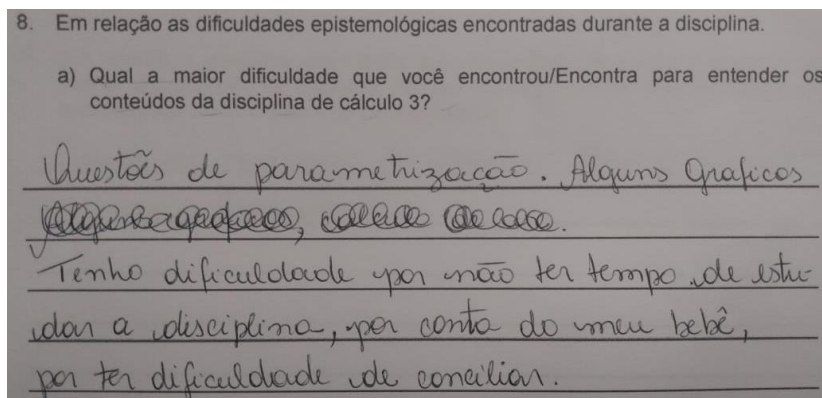 8. Em relação as dificuldades epistemológicas encontradas durante a disciplina.
a) Qual a maior dificuldade que você encontrou/Encontra para entender os
conteúdos da disciplina de cálculo 3?
Questões de parametrização. Alguns Graficos
Tenho dificuldade por não ter tempo de estu-
dar a disciplina, por conta do meu bebê,
por ter dificuldade de conciliar.